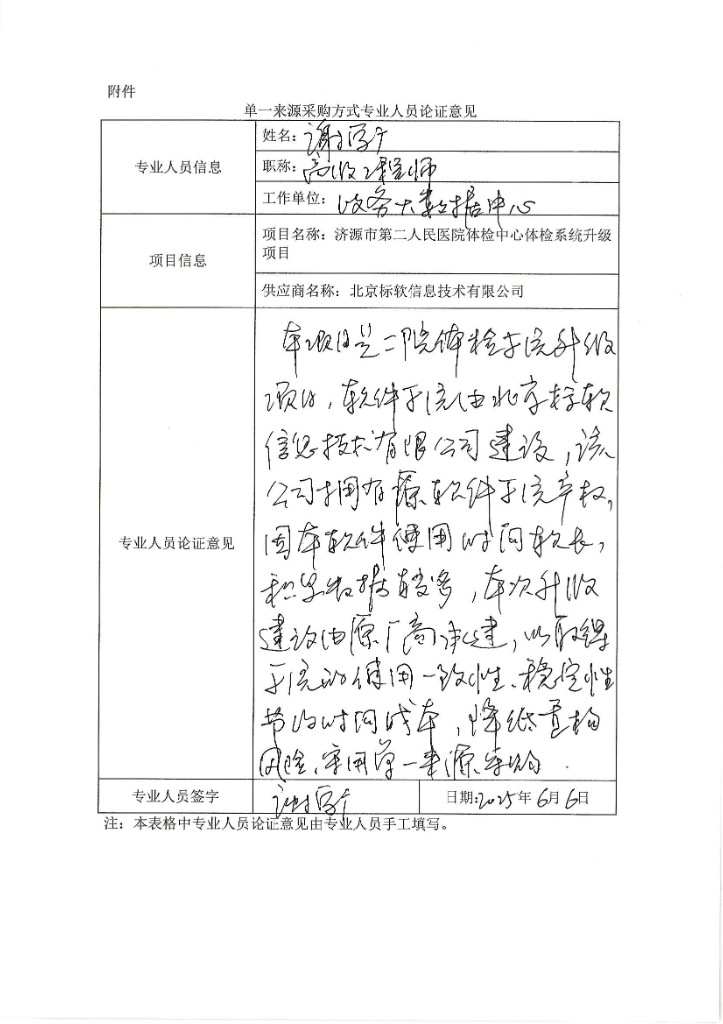 附件
单一来源采购方式专业人员论证意见
专业人员信息
姓名：谢
职称：高级工程师
工作单位：政务大数据中心
项目信息
项目名称：济源市第二人民医院体检中心体检系统升级
项目
供应商名称：北京标软信息技术有限公司
专业人员论证意见
本项目是二院体检系统升级
项目，软件系统由北京标软
信息技术有限公司建设，该
公司拥有原软件系统产权，
因本软件使用时间较长，
积累数据较多，本次升级
建设由原厂商承建，以取得
系统的使用一致性、稳定性
节约时间成本，降低重构
风险，采用单一来源采购.
专业人员签字
谢
日期:2025年6月6日
注：本表格中专业人员论证意见由专业人员手工填写。